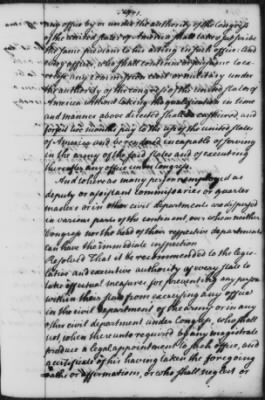 any office by or under the authority of the Congress
of the United States of America shall take & subscribe
the same previous to his acting in such office. And
every officer, who shall continue or presume to
exercise any commission civil or military under
the authority of the congress of the united states of
America without taking the qualification in time
and manner above directed shall be cashiered and
forfeit two months pay to the use of the united states
of America and be rendered incapable of serving
in the army of the said states and of executing
thereafter any office under Congress.
And whereas many persons employed as
deputy or assistant commissaries or quarter
masters or in other civil departments are dispersed
in various parts of the continent, over whom neither
Congress nor the heads of their respective departments
can have the immediate inspection
Resolved That it be recommended to the legis-
lative and executive authority of every state to
take effectual measures for preventing any person
within their state from exercising any office
in the civil department of the army or in any
other civil department under Congress, who shall
not when thereunto required by any magistrate
produce a legal appointment to such office, and
a certificate of his having taken the foregoing
oaths or affirmations, or who shall neglect or